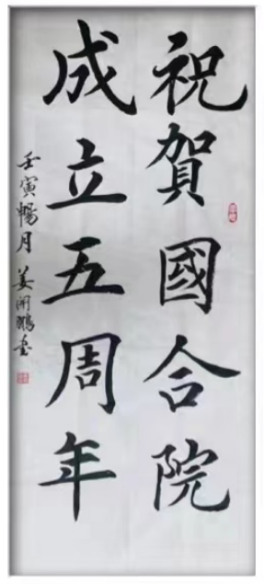 祝賀國合院
成立五周年
壬寅暢月 姜開鵬書